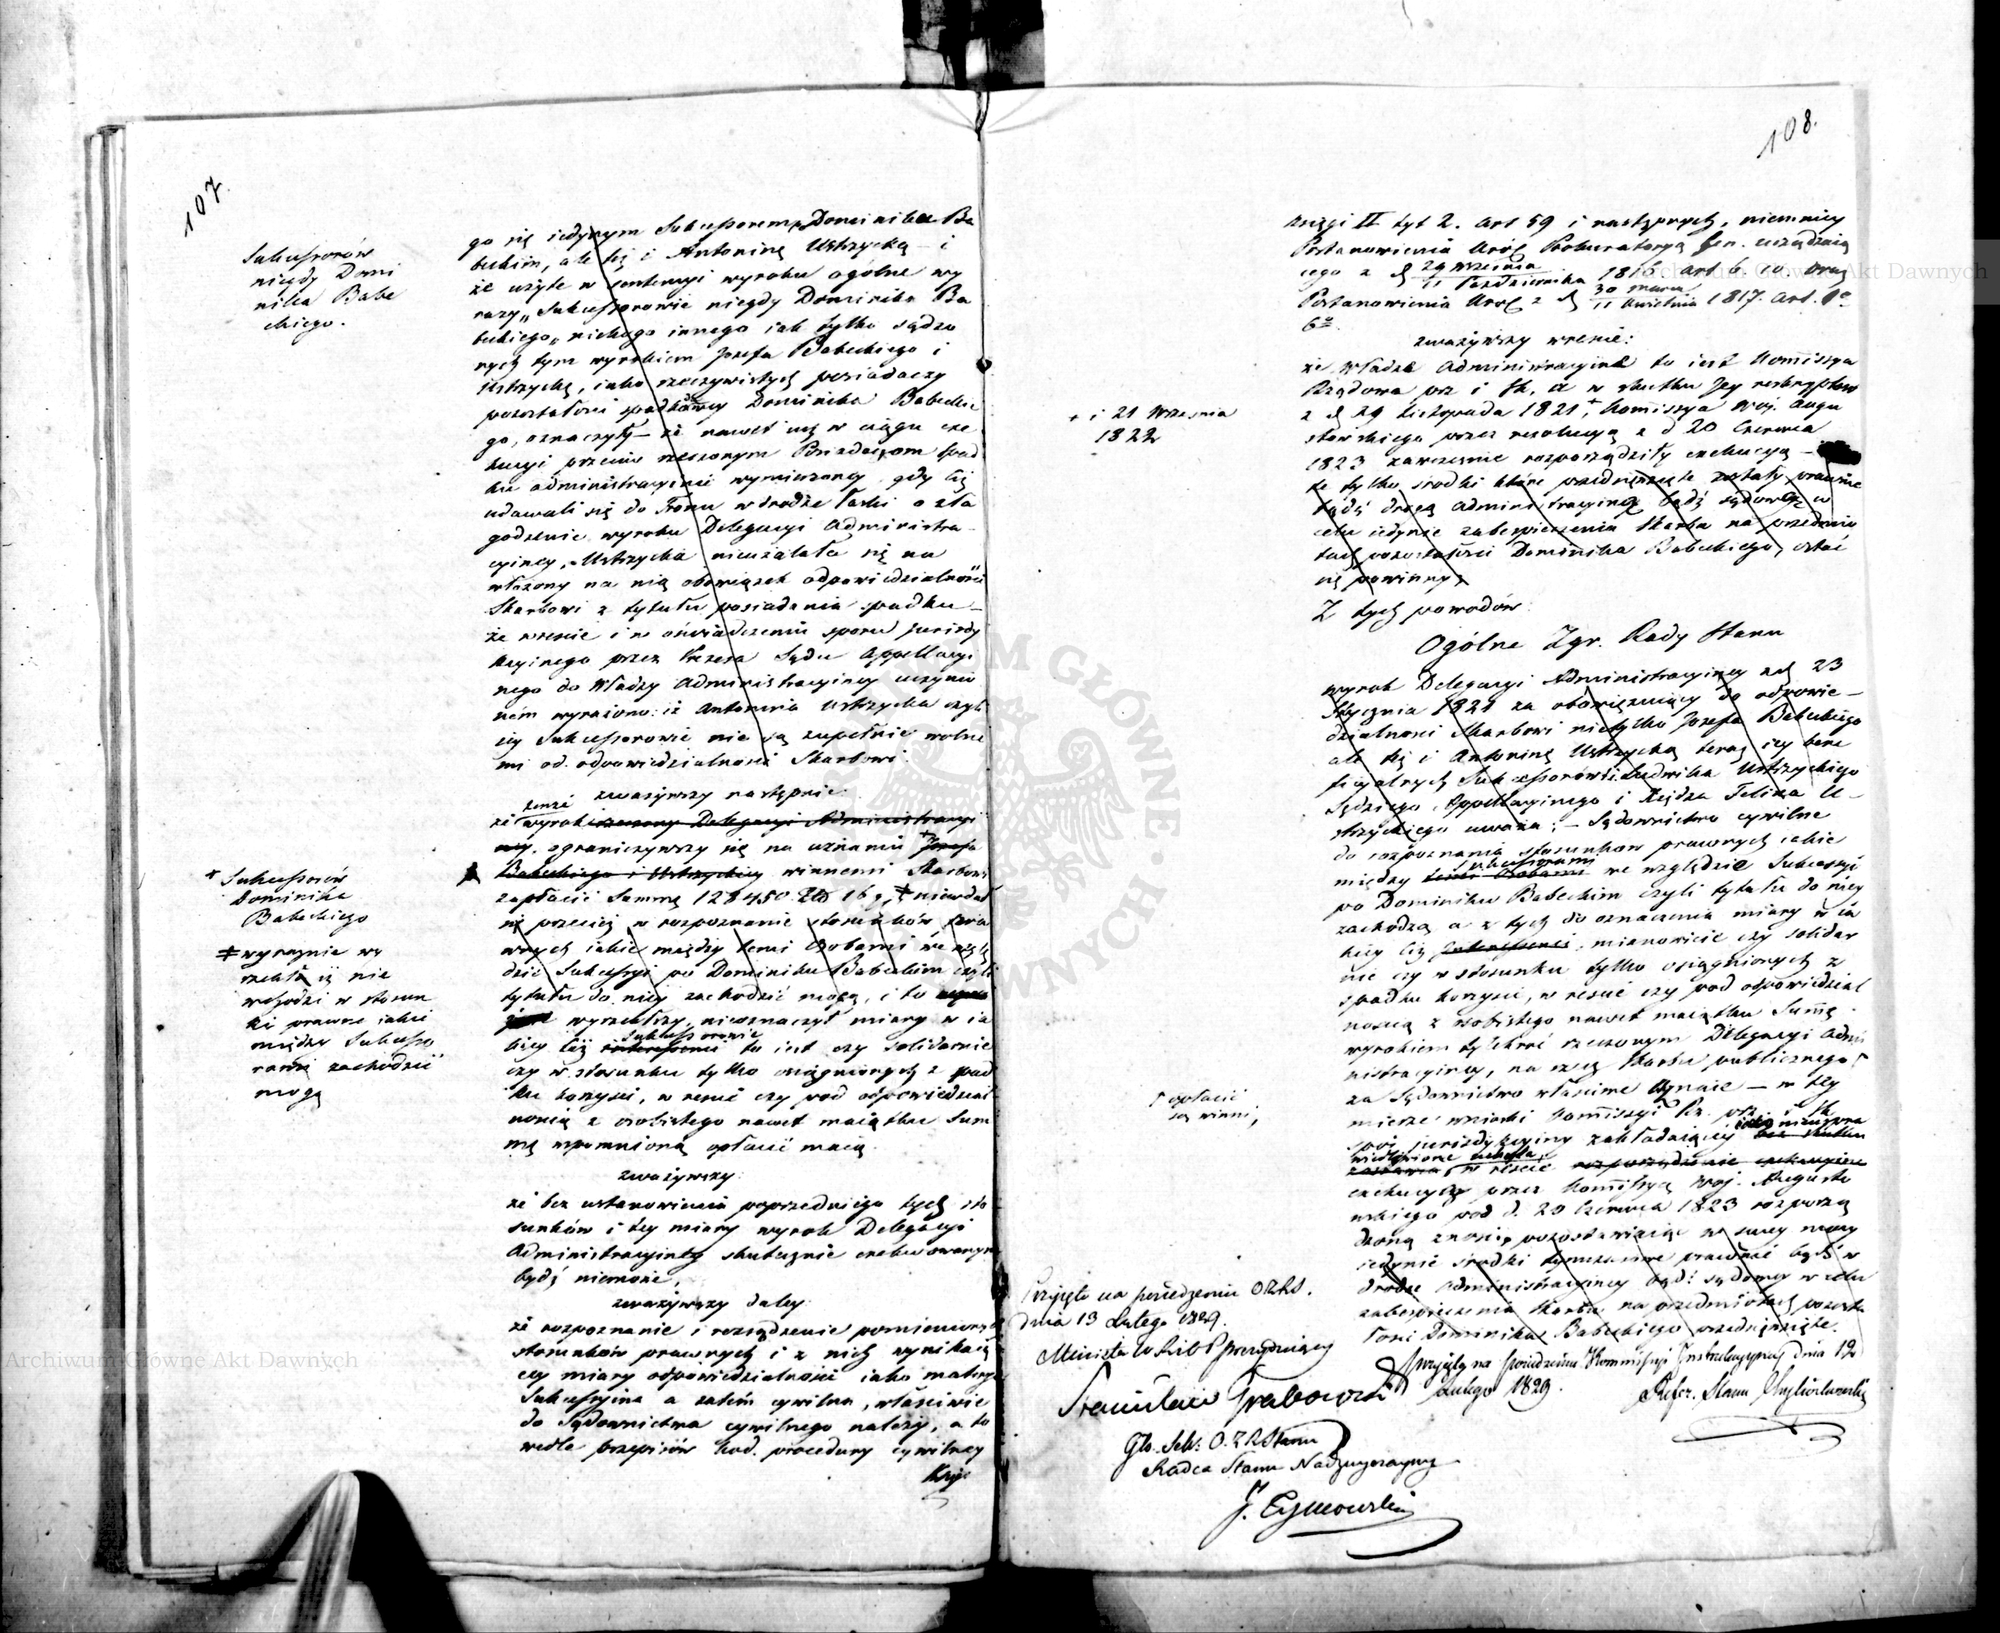 107.
Sukcessorów
niegdy Domi
nika Babe
ckiego.
go się jedynym Sukcessorem Dominika Ba
beckim, ale tej i Antoninę Ustrzycką – i
że użyte w sentencyi wyroku ogólne wy
razy „Sukcessorowie niegdy Dominika Ba
beckiego" nikogo innego jak tylko sądzo
nych tym wyrokiem Jozefa Babeckiego i
Ustrzycką, jako rzeczywistych posiadaczy
pozostałości spadkowey Dominika Babeckie
go, oznaczyły – że nawet iuż w ciągu exe
kucyi przeciw rzeczonym Posiadaczom spad
ku administracyinie wymierzoney, gdy się
udawali się do Tronu w drodze łaski o zła
godzenie wyroku Delegacyi Administra
cyiney, Ustrzycka nieużalała się na
włożony na nią obowiązek odpowiedzialności
Skarbowi z tytułu posiadania spadku –
że wreście i w oświadczeniu sporu jurisdy
kcyinego przez Prezesa Sądu Appellacyi
nego do Władzy Administracyiney uczynio
ném wyrażono: iż Antonina Ustrzycka czyli
iey Sukcessorowie nie są zupełnie wolne
mi od odpowiedzialności Skarbowi.
zważywszy następnie:
tenże
że wyrok rzeczony Delegacyi Administracyi
ney, ograniczywszy się na uznaniu + Jozefa
Babeckiego i Ustrzyckiey winnemi Skarbowi
zapłacić Summę 128450 Złp 16 g, ‡ niewdał
się przecież w rozpoznanie stosunków pra
wnych iakie między temi osobami we wzglę
dzie Sukcessyi po Dominiku Babeckim czyli
tytułu do niey zachodzić mogą, i to
wyrzekłszy, nieoznaczył miary w ia
Sukcessorowie
kiey ciż interessenci to iest czy solidarnie
czy w stosunku tylko osiągnionych z spad
ku korzyści, wreście czy pod odpowiedzial
nością z osobistego nawet maiątku Sum
mę wpomnioną opłacić maią.
zważywszy:
że bez ustanowienia poprzedniego tych sto
sunków i tey miary wyrok Delegacyi
Administracyiney skutecznie exekwowanym
bydź niemoże,
zważywszy daley:
że rozpoznanie i rozsądzenie pomienionych
stosunków prawnych i z nich wynikaią
cey miary odpowiedzialności iako materya
Sukcessyjna a zatém cywilna, właściwie
do Sądownictwa cywilnego należy, a to
wedle przepisów Kod. procedury cywilney
Księ
+ Sukcessorów
Dominika
Babeckiego
‡ wyraznie wy
rzekła iż nie
wchodzi w stosun
ki prawne iakie
między Sukcesso
rami zachodzić
mogą
108.
Księgi II tyt 2. Art 59 i następnych, niemniey
Postanowienia Król Prokuratoryą Jen. urządzaią
cego z d 29 Września / 11 Października 1816 art 6. 10. oraz
Postanowienia Król z d 30 marca / 11 Kwietnia 1817. Art. 1º
6º
zważywszy wreście:
że Władze Administracyine to iest Kommissya
Rządowa prz i Sk, a w skutku Jey reskryptów
z d 29 Listopada 1821 +, Kommissya Woj. Augu
stowskiego przez rezolucyą z d 20 Czerwca
1823 zawczesnie rozporządziły exekucyą –
że tylko środki które przedsięwzięte zostały prawnie
bądź drogą administracyiną bądź sądową w
celu iedynie zabespieczenia Skarbu na przedmio
tach pozostałości Dominika Babeckiego, ostać
się powinny,
Z tych powodów:
Ogólne Zgr. Rady Stanu
wyrok Delegacyi Administracyiney z d 23
Stycznia 1821 za obowiązuiący do odpowie –
dzialności Skarbowi nietylko Jozefa Babeckiego
ale tej i Antoninę Ustrzycką teraz iey bene
ficyalnych Sukcessorów: Ludwika Ustrzyckiego
Sędziego Appellacyinego i Xiędza Felixa U –
strzyckiego uważa; – Sądownictwo cywilne
do rozpoznania stosunków prawnych iakie
Sukcessorami
między temi osobami we względzie Sukcessyi
po Dominiku Babeckim czyli tytułu do niey
zachodzą a z tych do oznaczenia miary w ia
kiey ciż interessenci, mianowicie czy solidar
nie czy w stosunku tylko osiągnionych z
spadku korzyści, wreście czy pod odpowiedzial
nością z osobistego nawet maiątku Summę
wyrokiem tylekroć rzeczonym Delegacyi Admi
nistracyiney, na rzecz Skarbu publicznego
za Sądownictwo właściwe uznaie – w tey
mierze wnioski Kommissyi Rz. prz. i Sk.
spór jurisdykcyiny zakładaiącey bez skutku
zostawia, wreście rozporządzenie exekucyine
exekucyą przez Kommissyą Woj. Augusto
wskiego pod d. 20 Czerwca 1823 rozporzą
dzoną znosi, pozostawiaiąc w swey mocy
iedynie środki tymczasowe prawnie bądź w
drodze administracyiney bądź sądowey w celu
zabespieczenia Skarbu na przedmiotach pozosta
łości Dominika Babeckiego przedsięwzięte.
+ i 21 Września
1822
opłacić
są winni;
Przyjęto na posiedzeniu OZRS.
dnia 13 Lutego 1829.
Minister Prezyduiący
Stanisław Grabowski
Gło. Sek: O. Z. R Stanu
Radca Stanu Nadzwyczayny
J. Tymowski
Przyjęty na posiedzeniu Kommissyi Instrukcyyney dnia 12
Lutego 1829.
Refer. Stanu